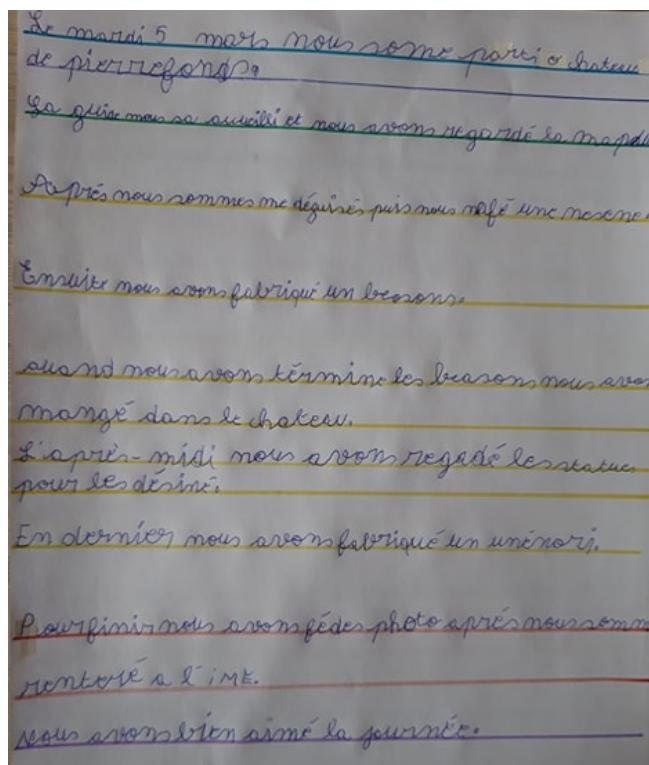 Le mardi 5 mars nous some parti o chateau
de pierrefonds.
La guide nous sa aceuilli et nous avons regardé la map du
Aaprés nous sommes me déguisés puis nous nafé une mesene.
Ensuite nous avons fabriqué un beasons.
quand nous avons términe les beasons nous avo
mangé dans le chateau.
L'après-midi nous avons regadé les statues
pour les désiné.
En dernier nous avons fabriqué un unénori.
Pour finir nous avons fédes photo aprés nous somm
rentoré a l'iME.
Nous avons bien aimé la journée.